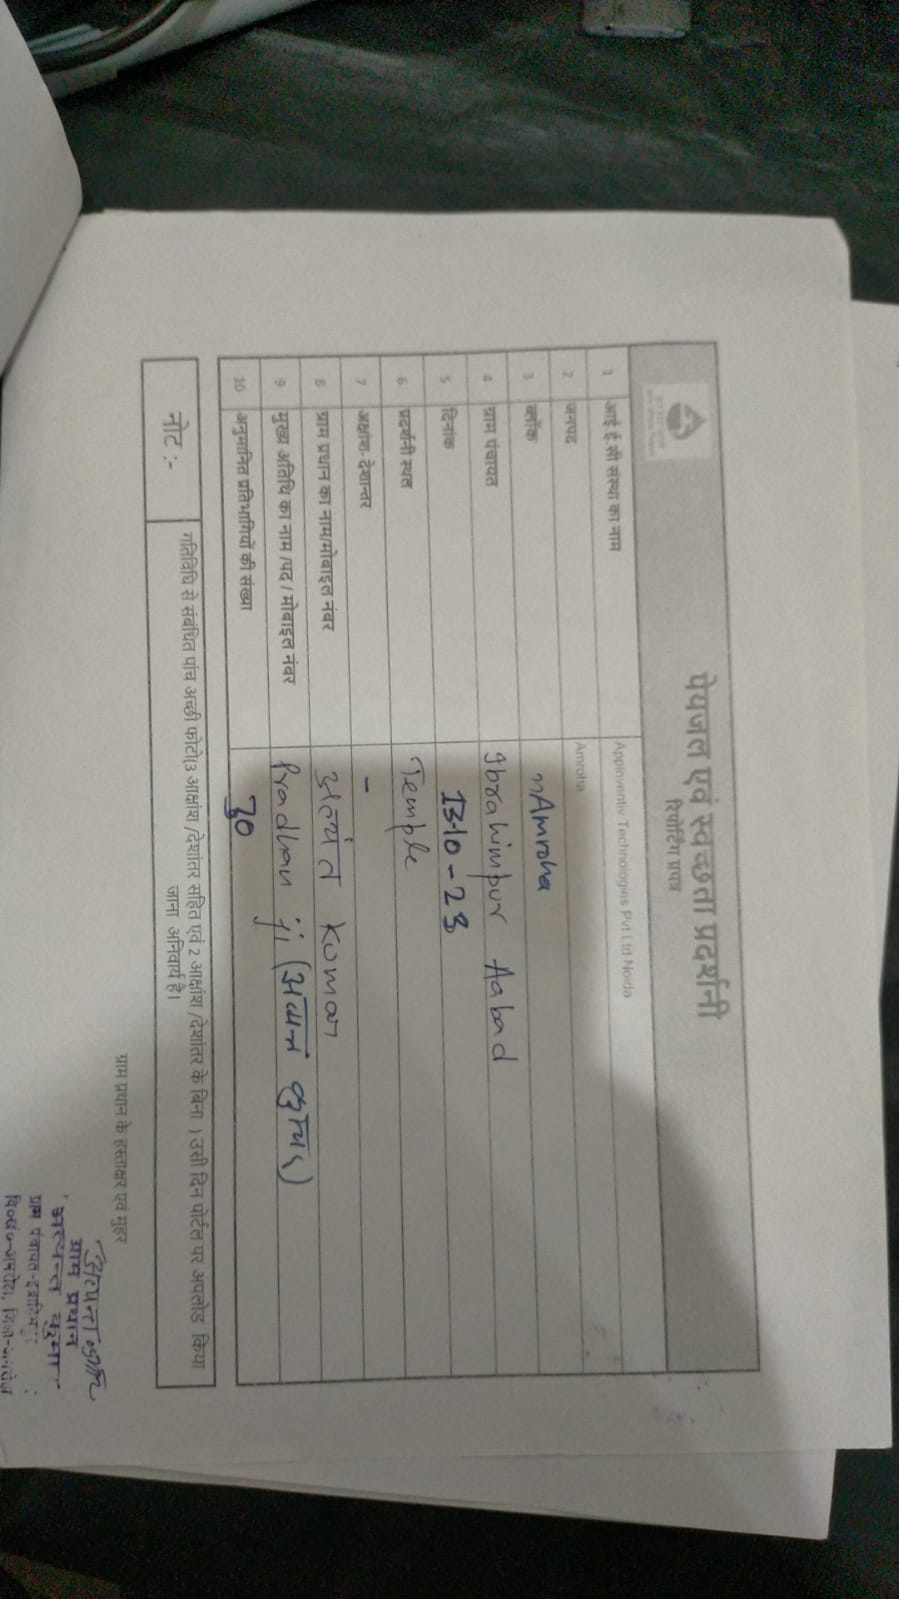 पेयजल एवं स्वच्छता प्रदर्शनी
रिपोर्टिंग प्रपत्र
1 आई ई सी संस्था का नाम Appinventiv Technologies Pvt Ltd Noida
2 जनपद Amroha
3 ब्लॉक Amroha
4 ग्राम पंचायत Ibrahimpur Aabad
5 दिनांक 13-10-23
6 प्रदर्शनी स्थल Temple
7 अक्षांश-देशान्तर -
8 ग्राम प्रधान का नाम/मोबाइल नंबर Kumar
9 मुख्य अतिथि का नाम /पद / मोबाइल नंबर Pradhan ji
10 अनुमानित प्रतिभागियों की संख्या 30
नोट :- गतिविधि से संबंधित पांच अच्छी फोटो(3 आक्षांश /देशांतर सहित एवं 2 आक्षांश /देशांतर के बिना ) उसी दिन पोर्टल पर अपलोड किया
जाना अनिवार्य है।
ग्राम प्रधान के हस्ताक्षर एवं मुहर
ग्राम प्रधान
ग्राम पंचायत-